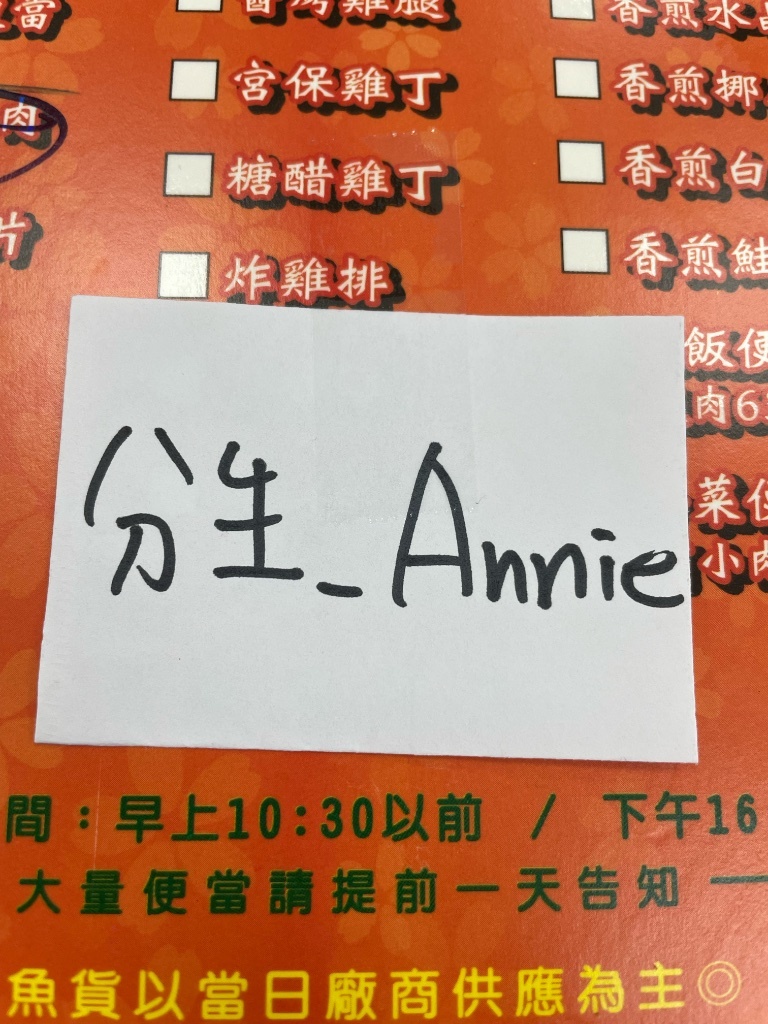 宮保雞丁
香煎挪
肉
糖醋雞丁
香煎白
片
炸雞排
香煎鮭
飯便
肉6
菜便
小肉
分生_Annie
間：早上10:30以前 / 下午16
大量便當請提前一天告知
魚貨以當日廠商供應為主◎